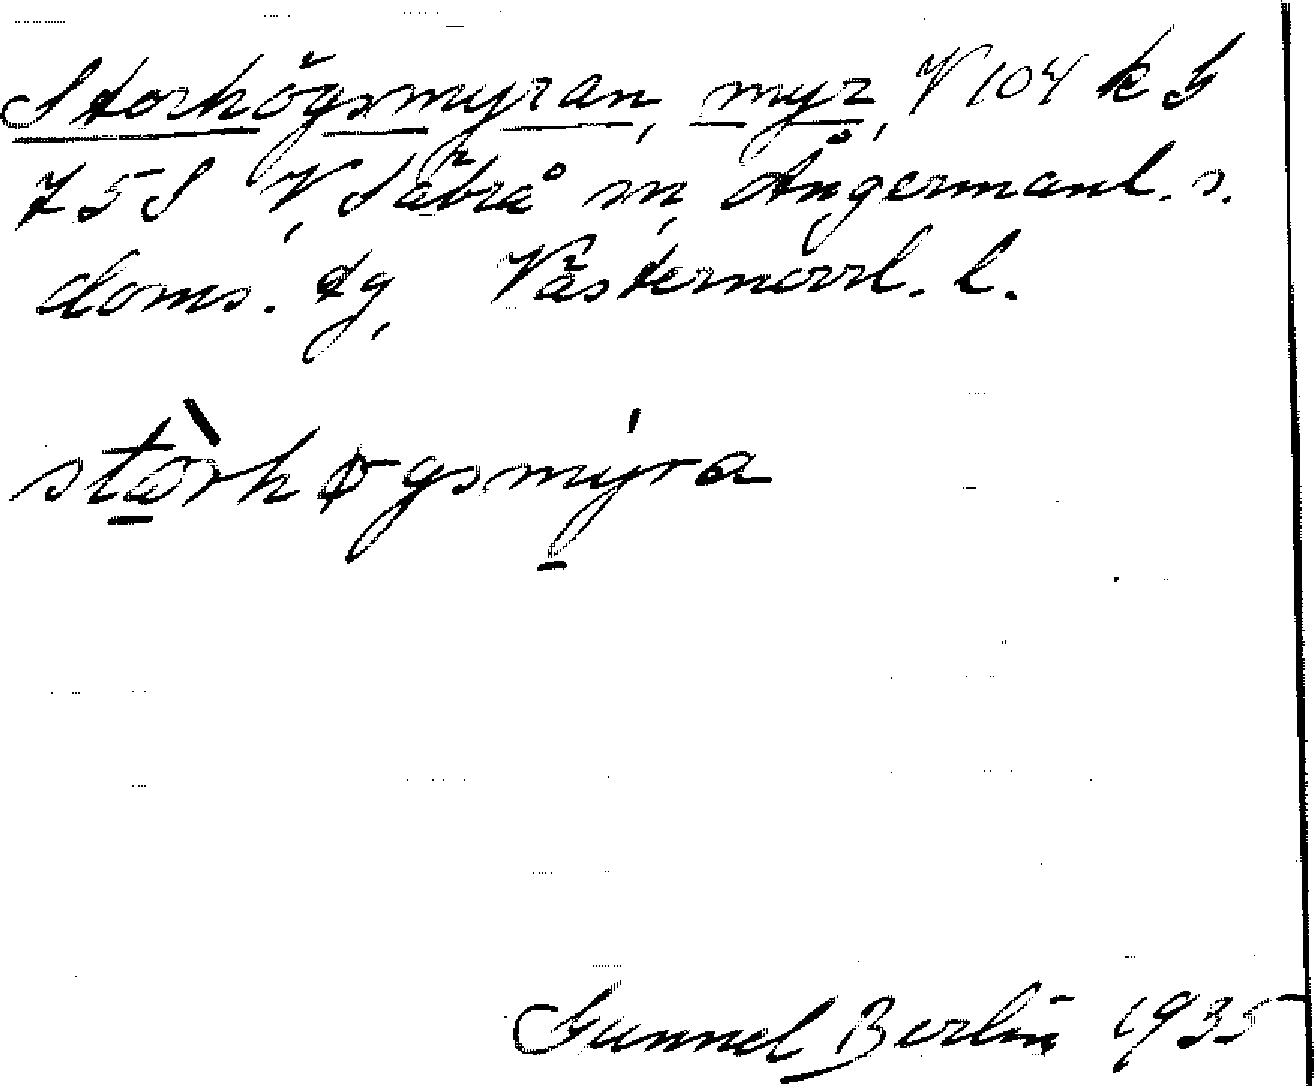 Storhögsmyran, myr, V 104 k G
75 S V, Säbrå sn, Ångermanl. s.
doms. tg, Västernorrl. l.
stòrhøgsmýra
Gunnel Berlin 1935